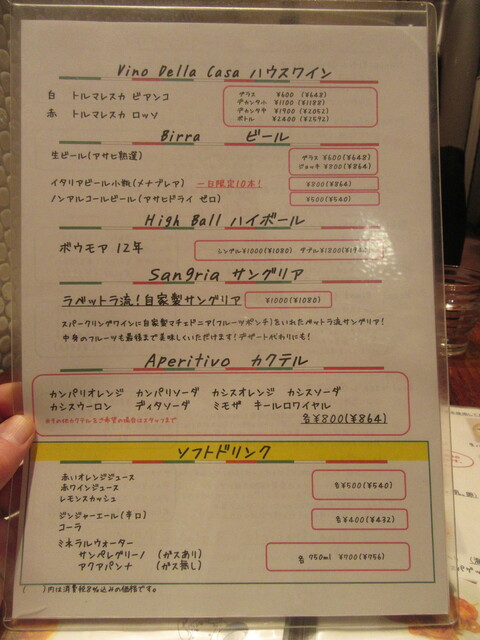 Vino Della Casa ハウスワイン
白 トルマレスカ ビアンコ
赤 トルマレスカ ロッソ
グラス ¥600 (¥648)
デカンタ小 ¥1100 (¥1188)
デカンタ中 ¥1900 (¥2052)
ボトル ¥2400 (¥2592)
Birra ビール
生ビール(アサヒ熟選)
グラス ¥600(¥648)
ジョッキ ¥800(¥864)
イタリアビール小瓶(メナブレア) 一日限定10本! ¥800(¥864)
ノンアルコールビール(アサヒドライ ゼロ) ¥500(¥540)
High Ball ハイボール
ボウモア 12年 シングル¥1000(¥1080) ダブル¥1800
Sangria サングリア
ラペットラ流!自家製サングリア ¥1000(¥1080)
スパークリングワインに自家製マチェドニア(フルーツポンチ)をいれたペットラ流サングリア!
中身のフルーツも最後まで美味しくいただけます!デザートがわりにも!
Aperitivo カクテル
カンパリオレンジ カンパリソーダ カシスオレンジ カシスソーダ
カシスウーロン ディタソーダ ミモザ キールロワイヤル
各¥800(¥864)
※その他カクテルをご希望の場合はスタッフまで
ソフトドリンク
赤いオレンジジュース
赤ワインジュース
レモンスカッシュ
各¥500(¥540)
ジンジャーエール(辛口)
コーラ
各¥400(¥432)
ミネラルウォーター
サンペレグリーノ (ガスあり)
アクアパンナ (ガス無し)
各 750ml ¥700(¥756)
( )内は消費税8%込みの価格です。